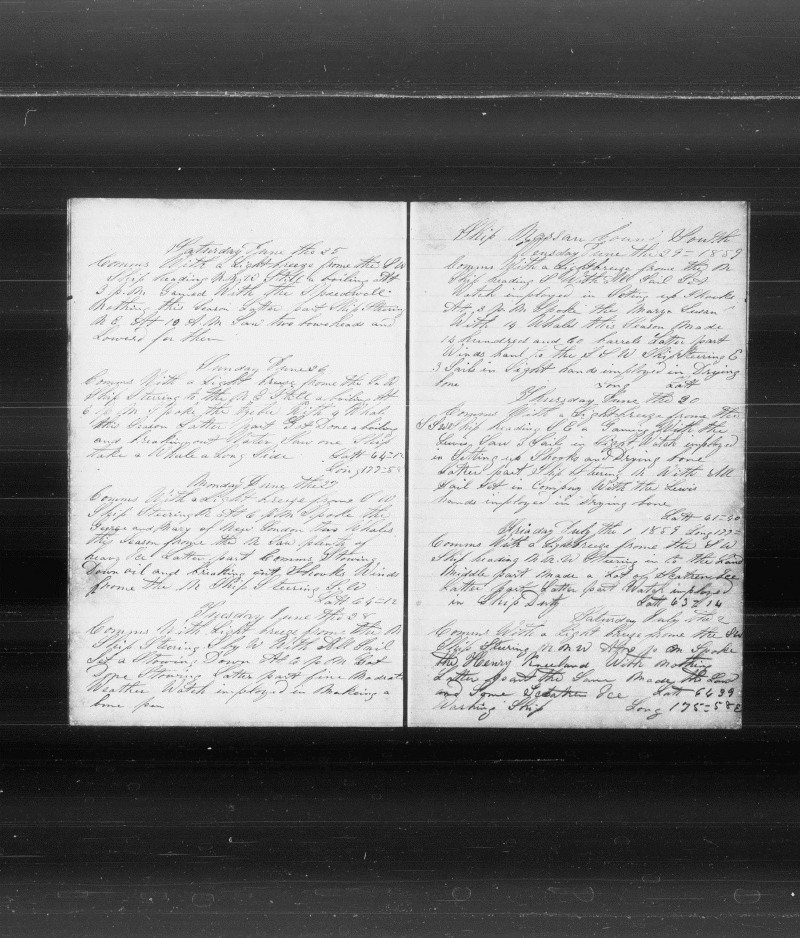 Saturday June the 25
Comms With a Light breeze frome the S W
Ship heading N W Still a boiling At
3 p M Gamed With the Speedwell
Nothing this Season Latter part Ship Stering
N E At 10 A M Saw two bowheads and
Lowered for them
Sunday June 26
Comms With a Light breeze frome the S W
Ship Steering to the N E Still a boiling At
6 p M Spoke the With 9 Whals
this Season Latter part Got Done a boiling
and breaking out Water Saw one Ship
take a Whale a Long Side Latt 64=
Long 177=5
Monday June the 27
Comms With a Light breeze frome S W
Ship Steering N At 6 p M Spoke the
George and Mary of New London two Whales
this Season frome the N Saw plenty of
heavy Ice Latter part Comms Stowing
Down oil and breaking out Shooks Winds
frome the N Ship Steering S W
Latt 64=12
Tuesday June the 28
Comms With Light breeze frome the N
Ship Steering S by W With All Sail
Set a Stowing Down At 6 p M Got
Done Stowing Latter part fine Madrate
Weather Watch imployed in Makeing a
bone pen
Ship South
June the 29= 1859
Comms With a Light breeze frome the N
Ship heading S With All Sail Set
Watch employed in Seting up Shooks
At 3 p M Spoke the Marye Susan
With 14 Whales this Season Made
hundred and 60 barrels Latter part
Winds haul to the S S W Ship Steering E
3 Sails in Sight hands imployed in Drying
bone Long Latt
Thursday June the 30
Comms With a Light breeze frome the
S W Ship heading S E a Gaming With the
Lewis Saw 3 Sail in Sight Watch employed
in Setting up Shooks and Drying bone
Latter part Ship Stering N With All
Sail Set in Compny With the Lewis
hands employed in Drying bone
Latt 61=50
Friday July the 1 1859 Long 177=
Comms With a Light breeze frome the S W
Ship heading N N W Steering in to the Land
Middle part Made a Lot of Scatren Ice
Latter part Latter part Watch employed
in Ship Duty Latt 63=14
Saturday July the 2
Comms With a Light breeze frome the S W
Ship Stering N N W At p M Spoke
the Henry Kneeland With Nothing
Latter part the Same Made the Land
and Some Scatren Ice Latt 64 39=
Working Ship Long 175=58